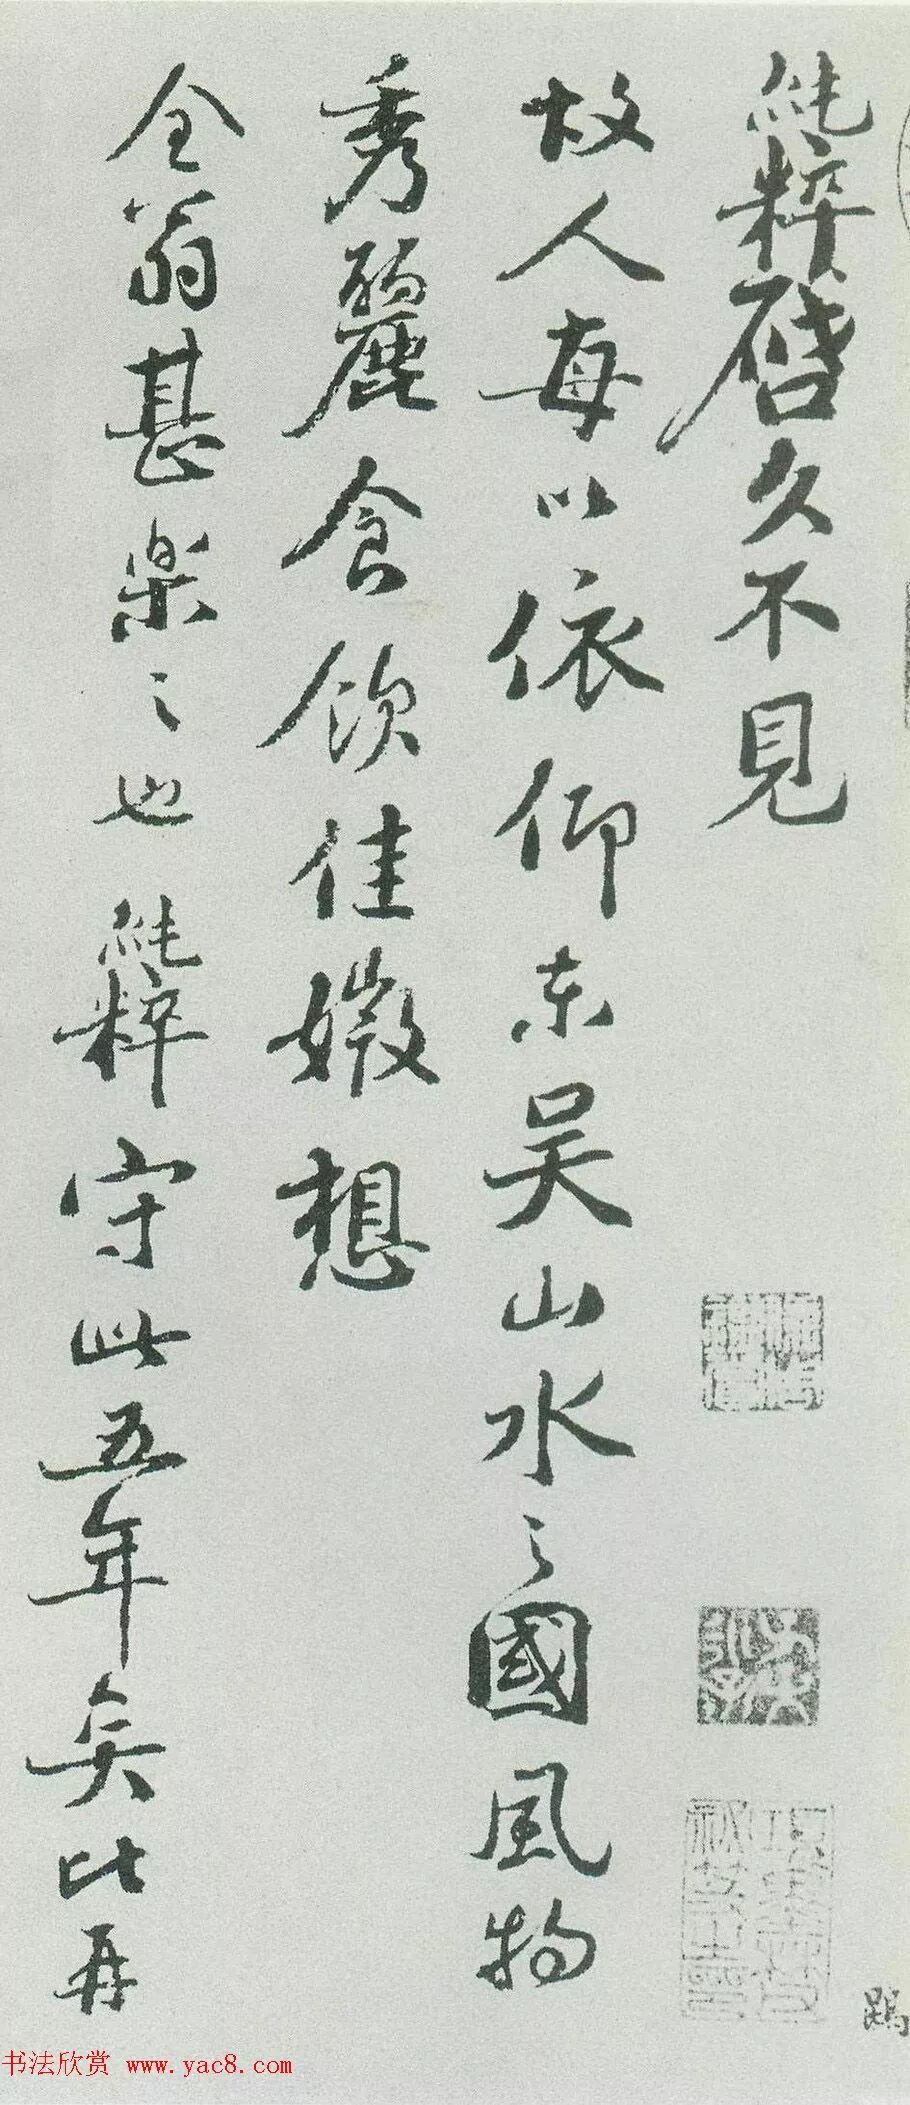 純粹啓久不見
故人每以依仰东吴山水之國風物
秀麗食飲佳媺想
全翁甚楽之也純粹守此五年矣比再
鷗
书法欣赏 www.yac8.com